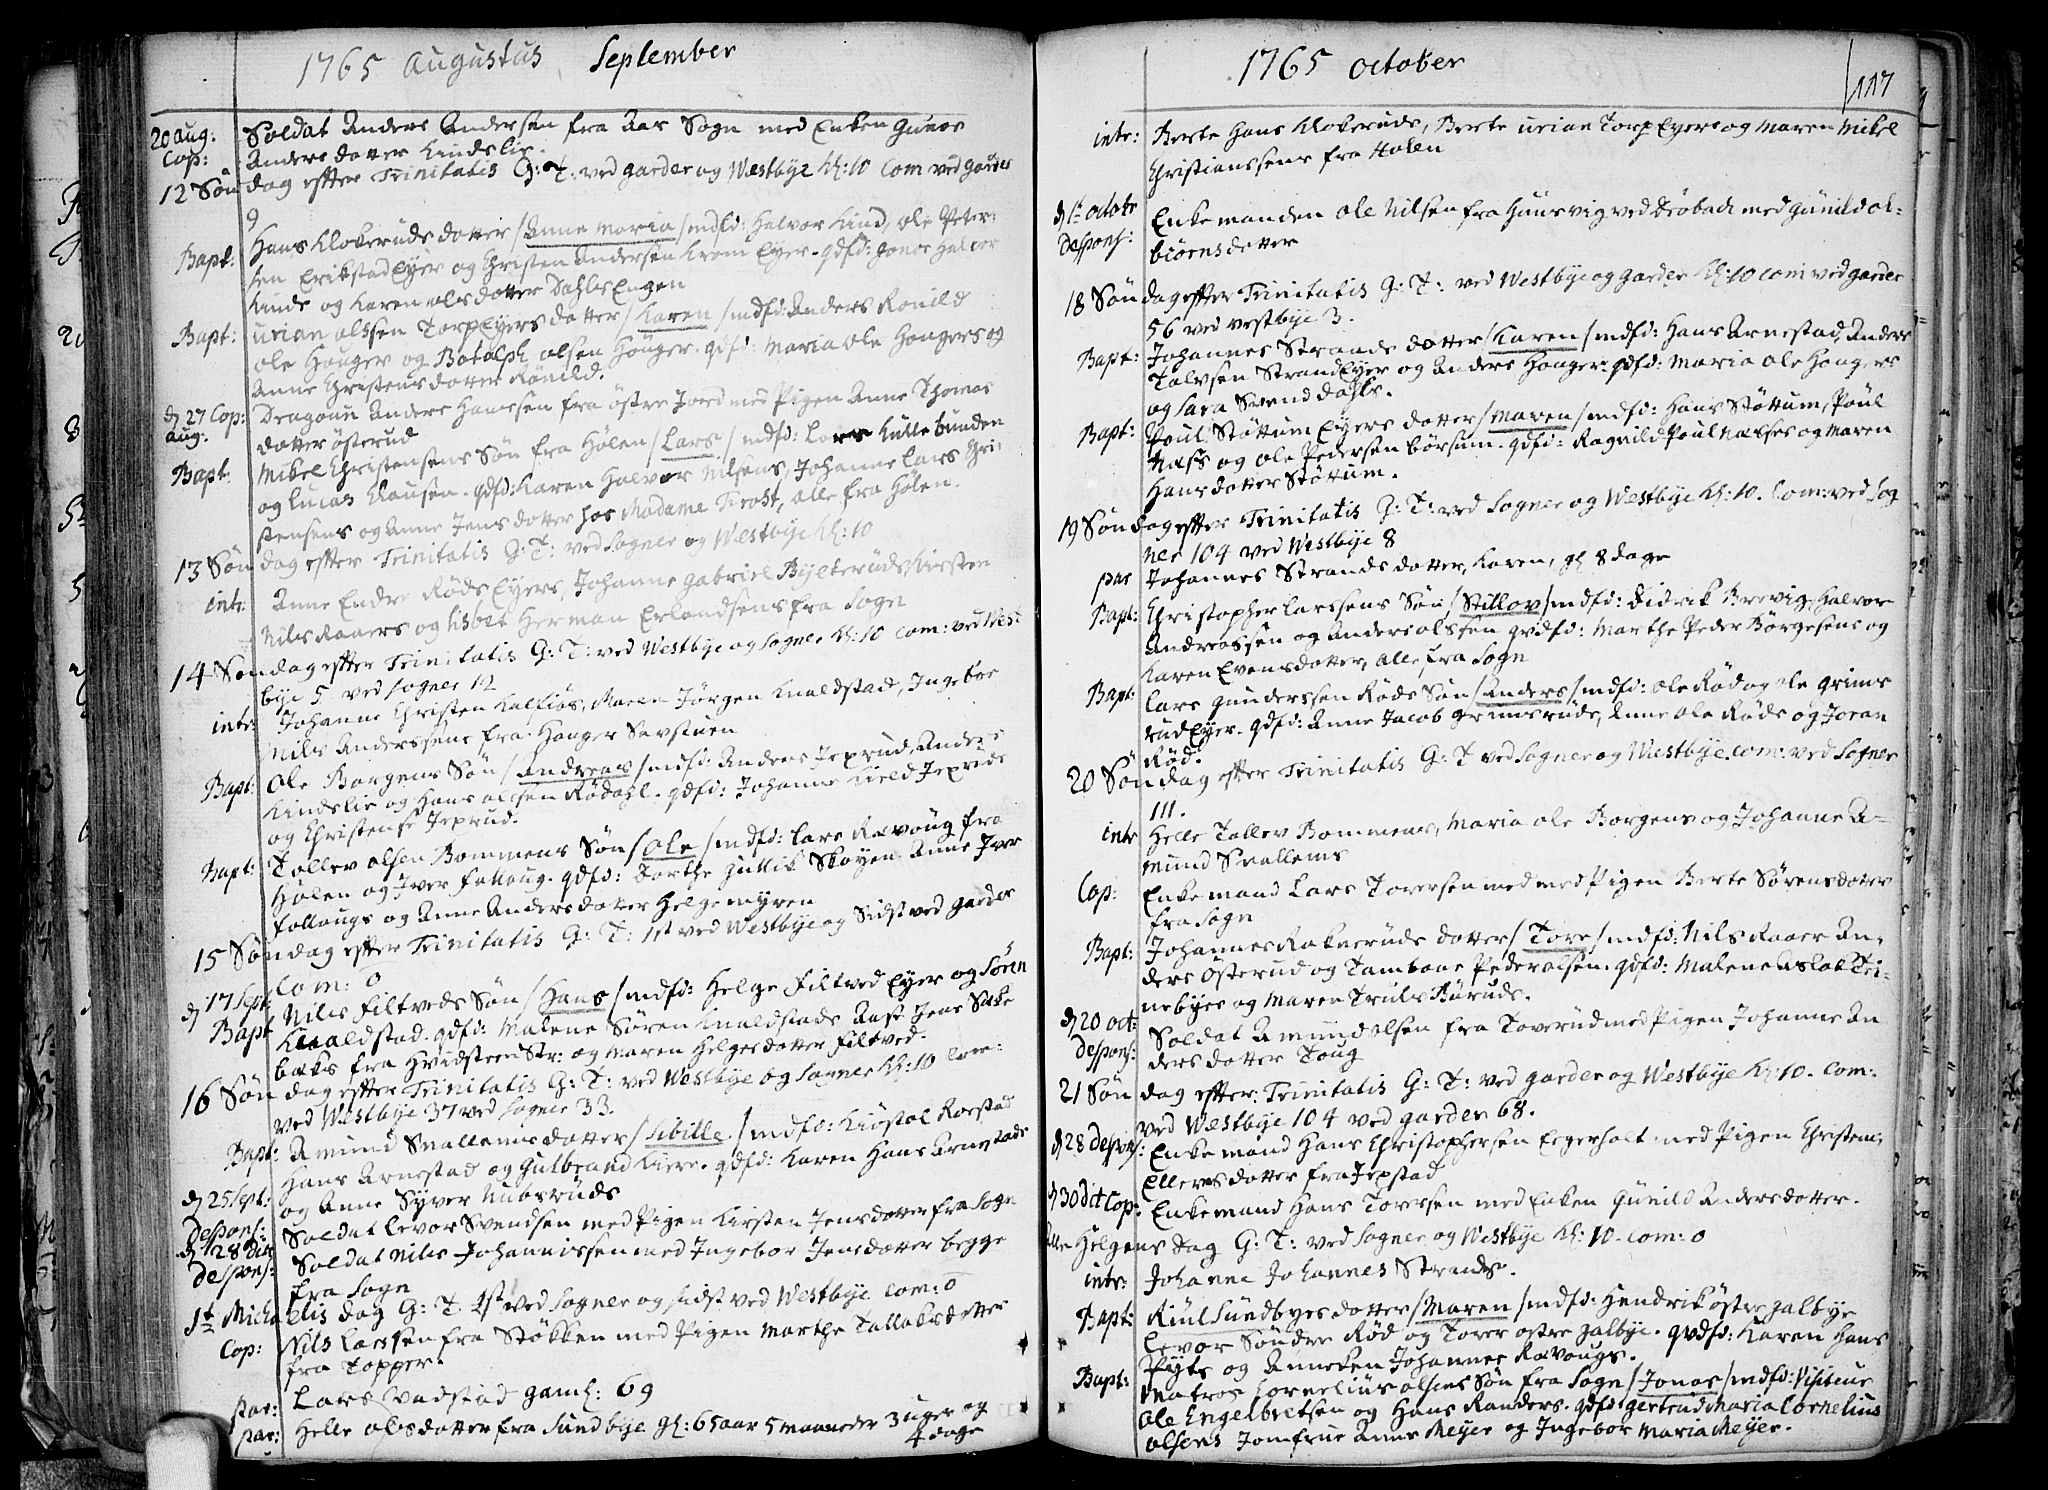 1765 Augustus September
20 aug: Soldat Anders Andersen fra Aas Sogn med Enken Gunor
Cop: Anders dotter Lindslie.
12 Søndag efter Trinitatis G: T: ved garder og Westbye Kl: 10 Com ved garder
9
Bapt: Hans Klokeruds dotter / Anne Maria / mdfd: Halvor Lind, Ole Peter-
sen Erikstad Eyer og Christen Andersen Krom Eyer. qdfd: Gonor Halvor
Linds og Karen olsdotter Dahls Engen
Bapt: Urian olssen Torp Eyers dotter / Karen / mdfd: Anders Ronild
Ole Houger og Botolph olsen Houger. qdfd: Maria Ole Hougers og
Anne Christensdotter Rönild.
d 27 Cop: Dragoun Anders Hansen fra östre Jord med Pigen Anne Thomas
aug: dotter österud
Bapt: Mikel Christensens Søn fra Hølen / Lars / mdfd: Lars Kullebunden
og Lucas Clausen. qdfd: Karen Halvor Nilsens, Johanne Lars Chri-
stensens og Anne Jensdotter hos Madame Frost, alle fra Hølen.
13 Søndag efter Trinitatis G: T: ved Sogner og Westbye Kl: 10
intr: Anne Endre Røds Eyers, Johanne Gabriel Bylteruds, Kirsten
Nils Raaers og Lisbet Herman Erlandsens fra Sogn
14 Søndag efter Trinitatis G: T: ved Westbye og Sogner Kl: 10 Com: ved West
bye 5 ved Sogner 12
intr: Johanne Christen Kalfiøs, Maren Jörgen Knaldstad, Ingebor
Nils Anderssens fra Houger Sevstuen
Bapt: Ole Borgens Søn / Andreas / mdfd: Anders Jeprud, Anders
Lindslie og Hans olssen Rödahl. qdfd: Johanne Kield Jepruds
og Christense Jeprud.
Bapt: Tollev olsen Bommens Søn / Ole / mdfd: Lars Ravoug fra
Hølen og Iver Follaug. qdfd: Dorthe Gullik Skoyen Anne Iver
Follaugs og Anne Andersdotter Helgemyren
15 Søndag efter Trinitatis G: T: 1st ved Westbye og Sidst ved garder
Com: 0
d 17 Sept: Nils Filtveds Søn / Hans / mdfd: Helge Filtved Eyer og Søren
Bapt Knaldstad. qdfd: Malene Søren Knaldstads Aase Jens Sake
beks fra Hvidsteen Str: og Maren Helgesdotter Filtved.
16 Søndag efter Trinitatis G: T: ved Westbye og Sogner Kl: 10 Com:
ved Westbye 37 ved Sogner 33.
Bapt: Amund Snallems dotter / Sibille / mdfd: Kiöstol Roestad
Hans Arnestad og Gulbrand Kiere. qdfd: Karen Hans Arnestads
d 25 Spt: og Anne Syver Nubsruds
Despons: Soldat Levor Svendsen med Pigen Kirsten Jensdotter fra Sogn
d 28 Dit Soldat Nils Johannissen med Ingebor Jensdotter begge
Despons: fra Sogn
St Michaelis dag G: T. 1st ved Sogner og sidst ved Westbye Com: 0
Cop: Nils Larssen fra Støkken med Pigen Marthe Tallaksdotter
fra Topper.
par: Lars Vadstad gaml: 69
par: Helle olsdotter fra Sundbye gl: 65 aar 5 maaneder 3 uger og
4 dage
1765 October
117
intr: Berte Hans Klokeruds, Berte Urian Torp Eyers og Maren Mikel
Christianssens fra Hølen
d 1te octobr Enkemanden Ole Nilsen fra Huusvig ved Dröbach med Gunild ol-
Despons: biörnsdotter
18 Søndag efter Trinitatis G: T: ved Westbye og garder Kl: 10 Com ved garder
56 ved vestbye 3.
Bapt: Johannes Strands dotter / Karen / mdfd: Hans Arnestad, Anders
Talvsen Strand Eyer og Anders Houger. qdfd: Maria Ole Hougers
og Sara Svend Dahls.
Bapt: Poul Støttum Eyers dotter / Maren / mdfd: Hans Støttum, Poul
Næss og Ole Pedersen börsum. qdfd: Ragnild Poul Næsses og Maren
Hansdotter Støttum.
19 Søndag efter Trinitatis G: T: ved Sogner og Westbye Kl: 10. Com: ved Sog
ner 104 ved Westbye 8
par Johannes Strands dotter, Karen, gl 8 dage
Bapt: Christopher Larssens Søn / Stillov / mdfd: Didrik Brevig, Halvor
Andreassen og Anders olssen qvdfd: Marthe Peder Børgesens og
Karen Evensdotter, Alle fra Sogn
Bapt: Lars Gunderssen Røds Søn / Anders / mdfd: Ole Rød og Ole Grims
rud Eyer. qdfd: Anne Jacob Grimsruds, Anne Ole Røds og Joran
Rød.
20 Søndag efter Trinitatis G: T ved Sogner og Westbye. Com: ved Sogner
111.
intr Helle Tallev Bommens, Maria Ole Borgens og Johanne A-
mund Snallems
Cop: Enkemand Lars Torersen med med Pigen Berte Sørensdotter
fra Sogn
Bapt: Johannes Rakneruds dotter / Tore / mdfd: Nils Raaer An-
ders Østerud og Tambour Peder olsen. qdfd: Malene Aslak Tei-
nebyes og Maren Truls Böruds.
d 20 oct: Soldat Amund olsen fra Toverud med Pigen Johanne An
Despons: dersdotter Toug
21 Søndag efter: Trinitatis G: T: ved garder og Westbye Kl: 10. Com:
ved Westbye 104 ved garder 68.
d 28 Despons: Enkemand Hans Christophersen Eegerholt med Pigen Christen-
Ellevsdotter fra Jepstad
d 30 Dit Cop: Enkemand Hans Torersen med Enken Gunild Andersdotter.
Alle Helgens Dag G: T: ved Sogner og Westbye Kl: 10. Com: 0
intr: Johanne Johannes Strands.
Bapt: Kiul Sundbyes dotter / Maren / mdfd: Hendrik östre galbye
Levor Söndre Rød og Torer ostre galbye. qvdfd: Karen Hans
Pyts og Anneken Johannes Ravougs.
Bapt: Matros Cornelius olsens Søn fra Sogn / Jonas / mdfd: Visiteur
Ole Engelbretsen og Hans Randers. qdfd: Gertrud Maria Cornelius
olsens Jomfrue Anne Meyer og Ingebor Maria Meyer.